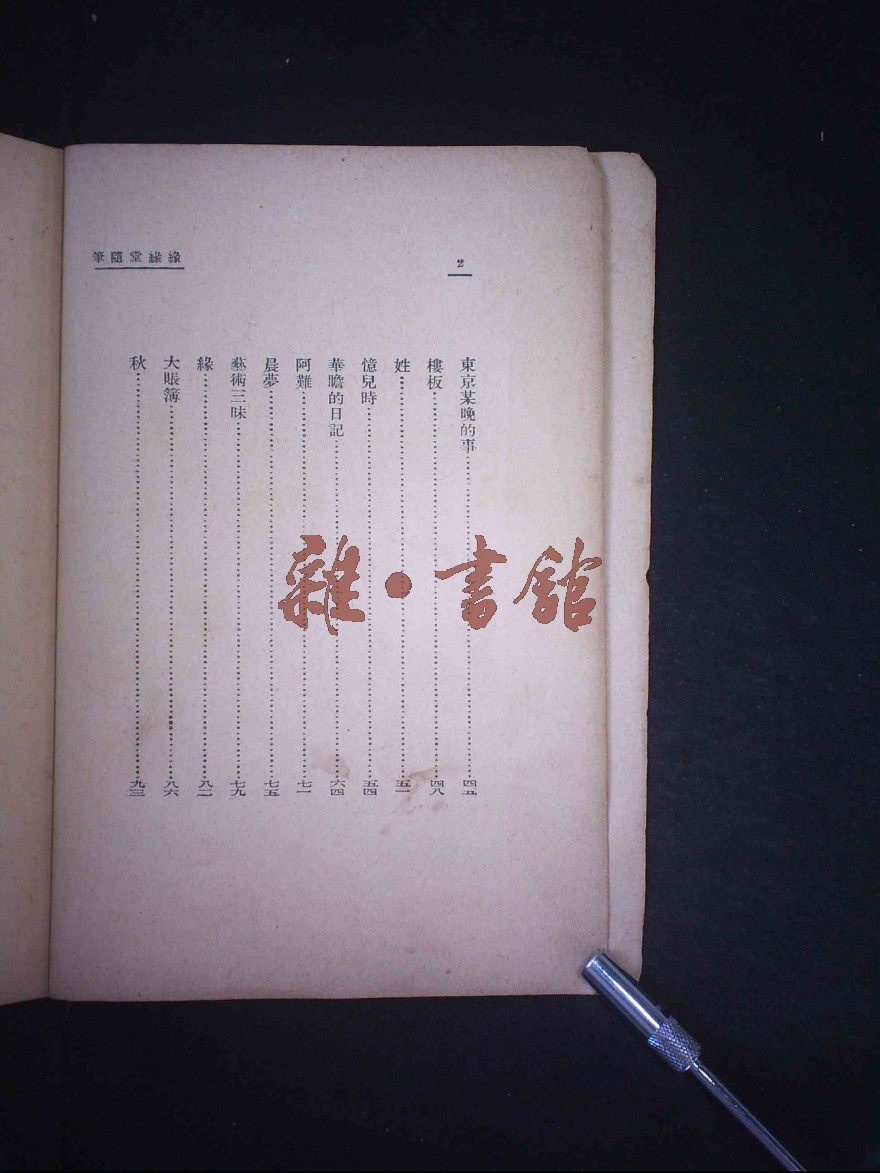 緣緣堂隨筆
2
東京某晚的事……四五
樓板……四八
姓……五一
憶兒時……五四
華瞻的日記……六四
阿難……七一
晨夢……七五
藝術三昧……七九
緣……八二
大賬簿……八六
秋……九三
雜·書館